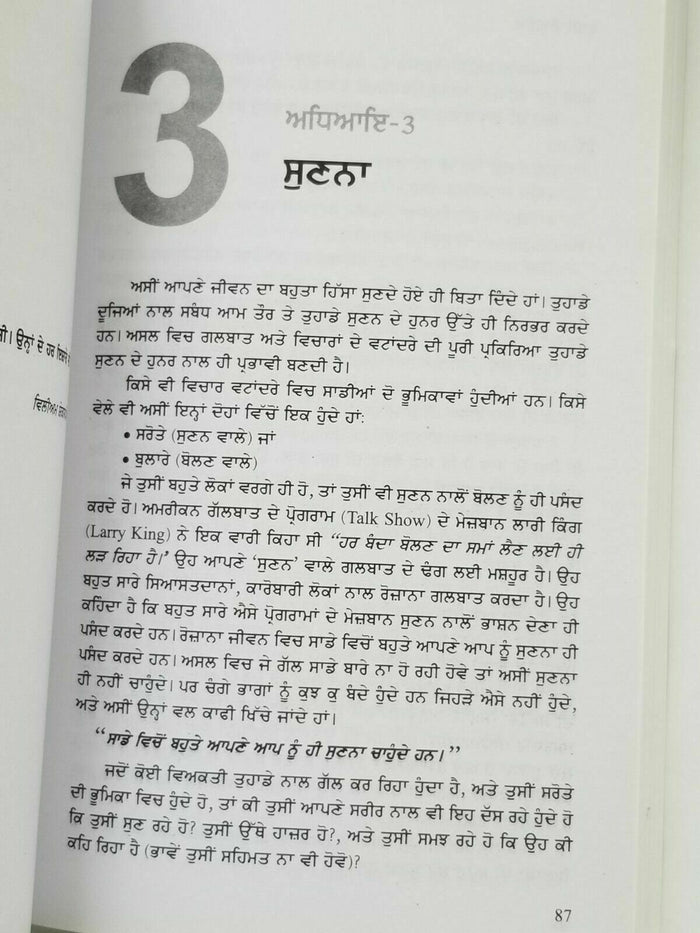 3
ਅਧਿਆਇ-3
ਸੁਣਨਾ
ਅਸੀਂ ਆਪਣੇ ਜੀਵਨ ਦਾ ਬਹੁਤਾ ਹਿੱਸਾ ਸੁਣਦੇ ਹੋਏ ਹੀ ਬਿਤਾ ਦਿੰਦੇ ਹਾਂ। ਤੁਹਾਡੇ
ਦੂਜਿਆਂ ਨਾਲ ਸਬੰਧ ਆਮ ਤੌਰ ਤੇ ਤੁਹਾਡੇ ਸੁਣਨ ਦੇ ਹੁਨਰ ਉੱਤੇ ਹੀ ਨਿਰਭਰ ਕਰਦੇ
ਹਨ। ਅਸਲ ਵਿਚ ਗਲਬਾਤ ਅਤੇ ਵਿਚਾਰਾਂ ਦੇ ਵਟਾਂਦਰੇ ਦੀ ਪੂਰੀ ਪ੍ਰਕਿਰਿਆ ਤੁਹਾਡੇ
ਸੁਣਨ ਦੇ ਹੁਨਰ ਨਾਲ ਹੀ ਪ੍ਰਭਾਵੀ ਬਣਦੀ ਹੈ।
ਕਿਸੇ ਵੀ ਵਿਚਾਰ ਵਟਾਂਦਰੇ ਵਿਚ ਸਾਡੀਆਂ ਦੋ ਭੂਮਿਕਾਵਾਂ ਹੁੰਦੀਆਂ ਹਨ। ਕਿਸੇ
ਵੇਲੇ ਵੀ ਅਸੀਂ ਇਨ੍ਹਾਂ ਦੋਹਾਂ ਵਿੱਚੋਂ ਇਕ ਹੁੰਦੇ ਹਾਂ:
• ਸਰੋਤੇ (ਸੁਣਨ ਵਾਲੇ) ਜਾਂ
• ਬੁਲਾਰੇ (ਬੋਲਣ ਵਾਲੇ)
ਜੇ ਤੁਸੀਂ ਬਹੁਤੇ ਲੋਕਾਂ ਵਰਗੇ ਹੀ ਹੋ, ਤਾਂ ਤੁਸੀਂ ਵੀ ਸੁਣਨ ਨਾਲੋਂ ਬੋਲਣ ਨੂੰ ਹੀ ਪਸੰਦ
ਕਰਦੇ ਹੋ। ਅਮਰੀਕਨ ਗੱਲਬਾਤ ਦੇ ਪ੍ਰੋਗਰਾਮ (Talk Show) ਦੇ ਮੇਜ਼ਬਾਨ ਲਾਰੀ ਕਿੰਗ
(Larry King) ਨੇ ਇਕ ਵਾਰੀ ਕਿਹਾ ਸੀ “ਹਰ ਬੰਦਾ ਬੋਲਣ ਦਾ ਸਮਾਂ ਲੈਣ ਲਈ ਹੀ
ਲੜ ਰਿਹਾ ਹੈ।’ ਉਹ ਆਪਣੇ ‘ਸੁਣਨ’ ਵਾਲੇ ਗਲਬਾਤ ਦੇ ਢੰਗ ਲਈ ਮਸ਼ਹੂਰ ਹੈ। ਉਹ
ਬਹੁਤ ਸਾਰੇ ਸਿਆਸਤਦਾਨਾਂ, ਕਾਰੋਬਾਰੀ ਲੋਕਾਂ ਨਾਲ ਰੋਜ਼ਾਨਾ ਗਲਬਾਤ ਕਰਦਾ ਹੈ। ਉਹ
ਕਹਿੰਦਾ ਹੈ ਕਿ ਬਹੁਤ ਸਾਰੇ ਐਸੇ ਪ੍ਰੋਗਰਾਮਾਂ ਦੇ ਮੇਜ਼ਬਾਨ ਸੁਣਨ ਨਾਲੋਂ ਭਾਸ਼ਨ ਦੇਣਾ ਹੀ
ਪਸੰਦ ਕਰਦੇ ਹਨ। ਰੋਜ਼ਾਨਾ ਜੀਵਨ ਵਿਚ ਸਾਡੇ ਵਿਚੋਂ ਬਹੁਤੇ ਆਪਣੇ ਆਪ ਨੂੰ ਸੁਣਨਾ ਹੀ
ਪਸੰਦ ਕਰਦੇ ਹਨ। ਅਸਲ ਵਿਚ ਜੇ ਗੱਲ ਸਾਡੇ ਬਾਰੇ ਨਾ ਹੋ ਰਹੀ ਹੋਵੇ ਤਾਂ ਅਸੀਂ ਸੁਣਨਾ
ਹੀ ਨਹੀਂ ਚਾਹੁੰਦੇ। ਪਰ ਚੰਗੇ ਭਾਗਾਂ ਨੂੰ ਕੁਝ ਕੁ ਬੰਦੇ ਹੁੰਦੇ ਹਨ ਜਿਹੜੇ ਐਸੇ ਨਹੀਂ ਹੁੰਦੇ,
ਅਤੇ ਅਸੀਂ ਉਨ੍ਹਾਂ ਵਲ ਕਾਫੀ ਖਿੱਚੇ ਜਾਂਦੇ ਹਾਂ।
“ਸਾਡੇ ਵਿਚੋਂ ਬਹੁਤੇ ਆਪਣੇ ਆਪ ਨੂੰ ਹੀ ਸੁਣਨਾ ਚਾਹੁੰਦੇ ਹਨ।”
ਜਦੋਂ ਕੋਈ ਵਿਅਕਤੀ ਤੁਹਾਡੇ ਨਾਲ ਗੱਲ ਕਰ ਰਿਹਾ ਹੁੰਦਾ ਹੈ, ਅਤੇ ਤੁਸੀਂ ਸਰੋਤੇ
ਦੀ ਭੂਮਿਕਾ ਵਿਚ ਹੁੰਦੇ ਹੋ, ਤਾਂ ਕੀ ਤੁਸੀਂ ਆਪਣੇ ਸਰੀਰ ਨਾਲ ਵੀ ਇਹ ਦੱਸ ਰਹੇ ਹੁੰਦੇ ਹੋ
ਕਿ ਤੁਸੀਂ ਸੁਣ ਰਹੇ ਹੋ? ਤੁਸੀਂ ਉੱਥੇ ਹਾਜ਼ਰ ਹੋ?, ਅਤੇ ਤੁਸੀਂ ਸਮਝ ਰਹੇ ਹੋ ਕਿ ਉਹ ਕੀ
ਕਹਿ ਰਿਹਾ ਹੈ (ਭਾਵੇਂ ਤੁਸੀਂ ਸਹਿਮਤ ਨਾ ਵੀ ਹੋਵੋ)?
87
ਉਨ੍ਹਾਂ ਦੇ ਹਰ
ਵਿਲੀਅਮ